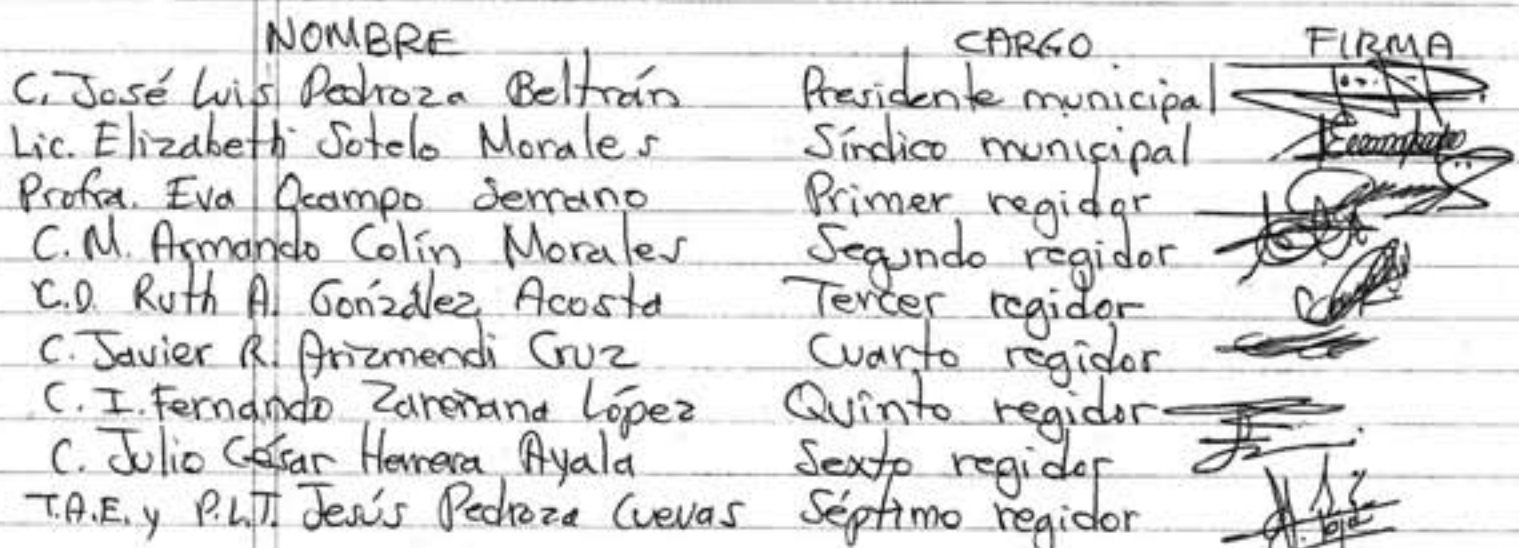 NOMBRE CARGO FIRMA
C. José Luis Pedroza Beltrán Presidente municipal
Lic. Elizabeth Sotelo Morales Síndico municipal
Profra. Eva Ocampo Serrano Primer regidor
C. M. Armando Colín Morales Segundo regidor
C.D. Ruth A. González Acosta Tercer regidor
C. Javier R. Arizmendi Cruz Cuarto regidor
C. I. Fernando López Quinto regidor
C. Julio César Herrera Ayala Sexto regidor
T.A.E. y P.L.T. Jesús Pedroza Cuevas Séptimo regidor